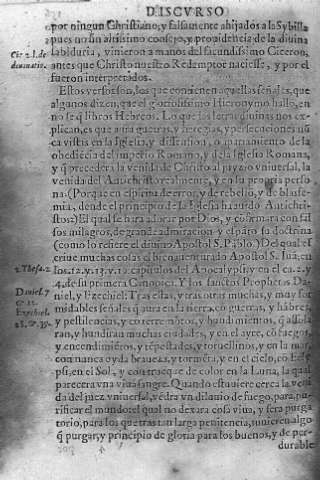 DISCVRSO
por ningun Christiano, y falsamente ahijados a la Sybilla
pues no sin altissimo consejo, y prouidencia de la diuina
sabiduria, vinieron a manos del facundissimo Ciceron,
antes que Christo nuestro Redemptor naciesse, y por el
fueron interpretados.
Estos versos son, los que contienen aquellas señales, que
algunos dizen, que el gloriosissimo Hieronymo hallo, en
no se q̃ libros Hebreos. Lo que las letras diuinas nos ex-
plican, es que aura guerras, y heregias, y persecuciones nũ
ca vistas en la Iglesia, y o
obediẽcia del Imperio Romano, y de la Iglesia Romana,
y q̃ precedera la venida de Christo al juyzio vniuersal, la
venida del Antichristo realmente, y en su propria perso
na. (Porque en doctrina de error, y de rebelio, y de blasfe-
mia, dende el principio de la Iglesia ha auido Antichris-
tos:) El qual se hara adorar por Dios, y cõfirmara con fal
sos milagros, de grande admiracion y espãto su doctrina
(como lo refiere el diuino Apostol S. Pablo.) Del qual es
criue muchas cosas el bienauenturado Apostol S. Iuã, en
los. 12. y. 13. y. 19. capitulos del Apocalypsi, y en el ca. 2. y
4. de su primera Canonica. Y los sanctos Prophetas Da-
niel, y Ezechiel: Tras estas, y tras otras muchas, y muy for
midables señales q̃ aura en la tierra, cõ guerras, y hãbres,
y pestilencias, y
ran, y hundiran muchas ciudades, y en el ayre, cõ fuegos,
y encendimiẽtos, y tẽpestades, y toruellinos, y en la mar,
con nunca oyda braueza, y tormẽta, y en el cielo, cõ Ecly
psi, en el Sol, y con trueque de color en la Luna, la qual
parecera vna viua sangre. Quando estuuiere cerca la veni
da del juez vniuersal, vẽdra vn diluuio de fuego, para pu-
rificar el mundo: el qual no dexara cosa viua, y sera purga
torio, para los que tras tan larga penitencia, tuuieren algo
q̃ purgar, y principio de gloria para los buenos, y de per-
durable
Cic. 2. l. de
2. Thesa. 2.
Daniel. 7
Ezechiel.